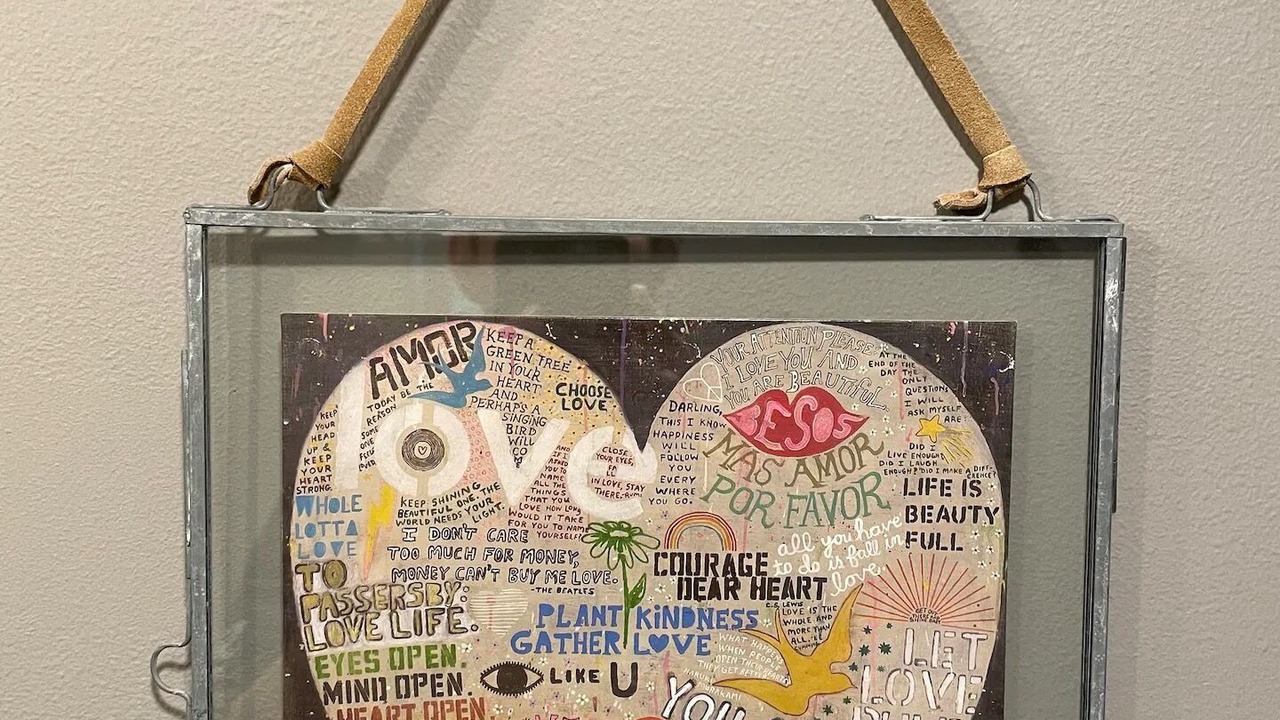 AMOR
KEEP A
GREEN TREE
IN YOUR
HEART
AND
PERHAPS A
SINGING
BIRD
WILL
CHOOSE
LOVE
TODAY BE THE
REASON
love
KEEP
YOUR
HEAD
UP &
KEEP
YOUR
HEART
STRONG.
CLOSE
YOUR EYES,
IN LOVE, STAY
THERE.
ALL THE
THINGS
THAT YOU
LOVE HOW LONG
WOULD IT TAKE
FOR YOU TO NAME
YOURSELF?
WHOLE
LOTTA
LOVE
KEEP SHINING
BEAUTIFUL ONE THE
WORLD NEEDS YOUR
LIGHT.
I DON'T CARE
TOO MUCH FOR MONEY,
MONEY CAN'T BUY ME LOVE.
-THE BEATLES
TO
PASSERSBY:
LOVE LIFE.
EYES OPEN.
MIND OPEN.
HEART OPEN.
PLANT KINDNESS
GATHER LOVE
LIKE U
YOUR ATTENTION PLEASE
I LOVE YOU AND
YOU ARE BEAUTIFUL
DARLING,
THIS I KNOW
HAPPINESS
WILL
FOLLOW
YOU
EVERY
WHERE
YOU GO.
BESOS
MAS AMOR
POR FAVOR
AT THE
END OF THE
DAY THE
ONLY
QUESTIONS
I WILL
ASK MYSELF
ARE:
DID I
LIVE ENOUGH?
DID I LAUGH
ENOUGH? DID I MAKE A DIFF-
ERENCE?
LIFE IS
BEAUTY
FULL
all you have
to do is fall in
love.
COURAGE
DEAR HEART
C.S. LEWIS
LOVE IS THE
WHOLE AND
MORE THAN
ALL.
WHAT HAPPENS
WHEN PEOPLE
OPEN THEIR HEARTS
THEY GET BETTER
HARUKI
MURAKAMI
LET
LOVE
YOU